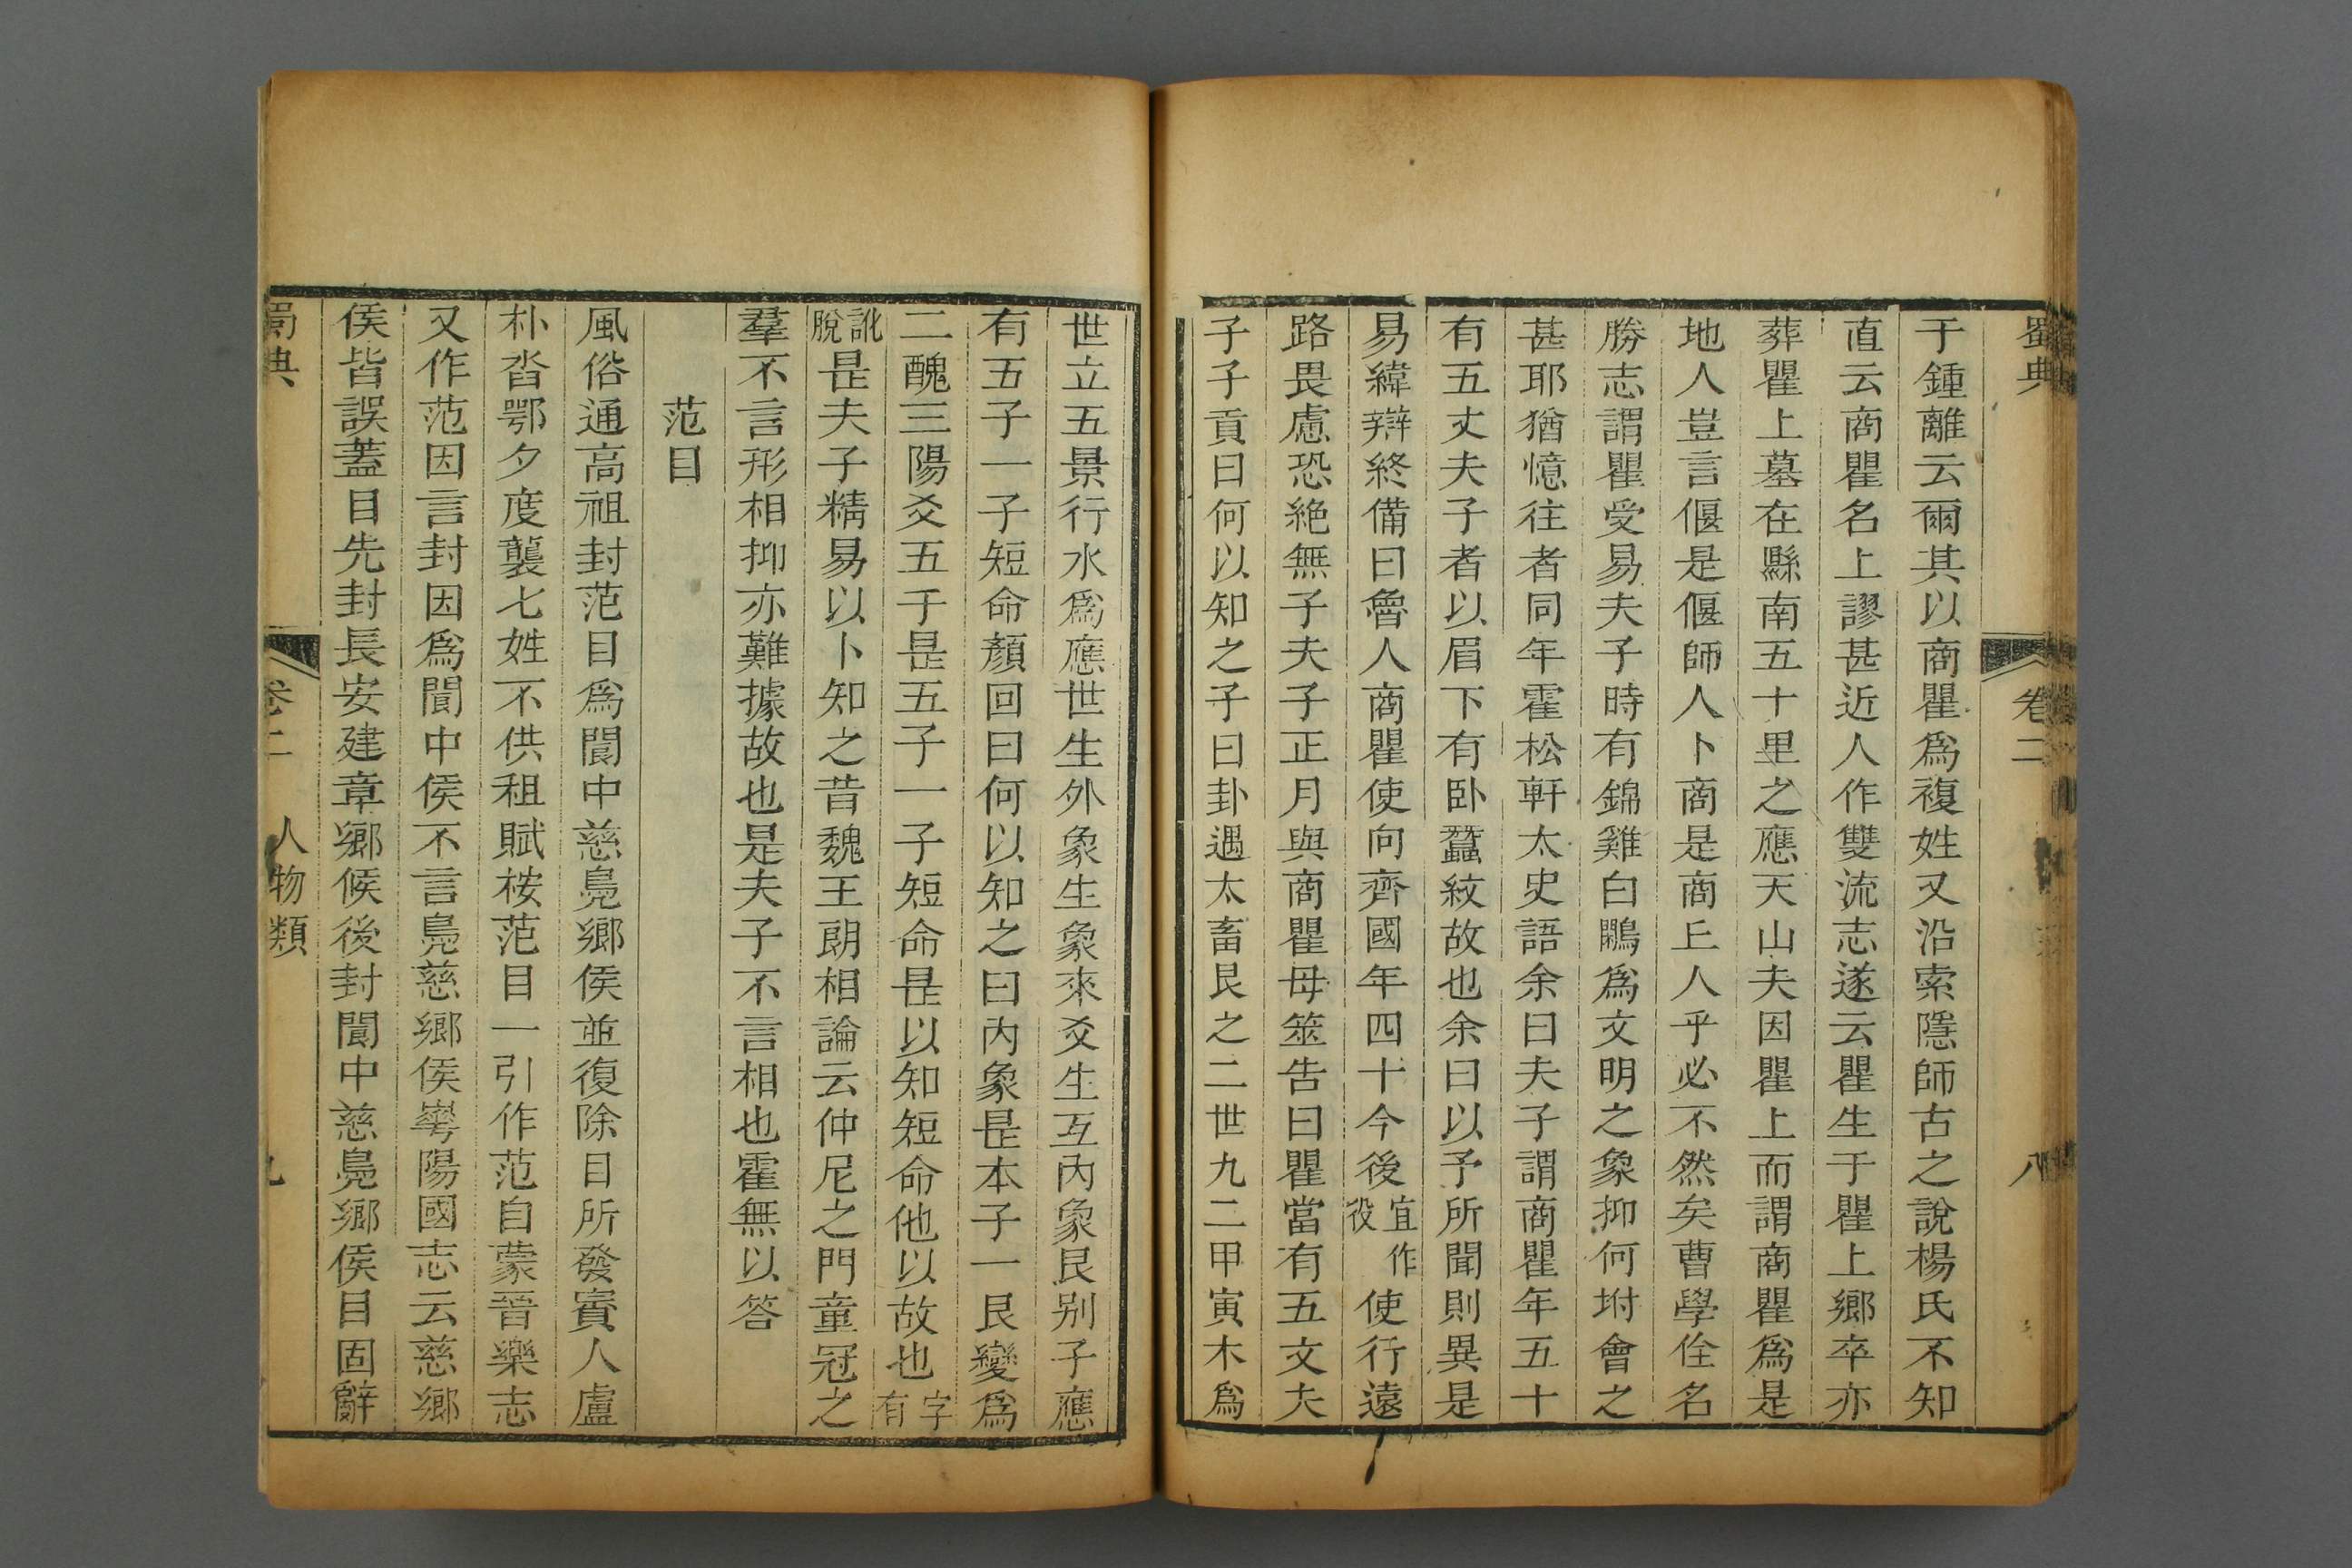 蜀典 卷二 八
于鍾離云爾其以商瞿爲複姓又沿索隱師古之說楊氏不知
直云商瞿名上謬甚近人作雙流志遂云瞿生于瞿上鄉卒亦
葬瞿上墓在縣南五十里之應天山夫因瞿上而謂商瞿爲是
地人豈言偃是偃師人卜商是商丘人乎必不然矣曹學佺名
勝志謂瞿受易夫子時有錦雞白鷴爲文明之象抑何坿會之
甚耶猶憶往者同年霍松軒太史語余曰夫子謂商瞿年五十
有五丈夫子者以眉下有卧蠶紋故也余曰以予所聞則異是
易緯辯終備曰魯人商瞿使向齊國年四十今後宜作役使行遠
路畏慮恐絶無子夫子正月與商瞿母筮告曰瞿當有五丈夫
子子貢曰何以知之子曰卦遇太畜艮之二世九二甲寅木爲
世立五景行水爲應世生外象生象來爻生互内象艮别子應
有五子一子短命顏回曰何以知之曰内象是本子一艮變爲
二醜三陽爻五于是五子一子短命是以知短命他以故也字有
訛脫是夫子精易以卜知之昔魏王朗相論云仲尼之門童冠之
羣不言形相抑亦難據故也是夫子不言相也霍無以答
范目
風俗通高祖封范目爲閬中慈鳧鄉侯並復除目所發賨人盧
朴沓鄂夕度襲七姓不供租賦桉范目一引作范自蒙晉樂志
又作范因言封因爲閬中侯不言鳧慈鄉侯崋陽國志云慈鄉
侯皆誤蓋目先封長安建章鄉候後封閬中慈鳧鄉侯目固辭
蜀典 卷二 人物類 九